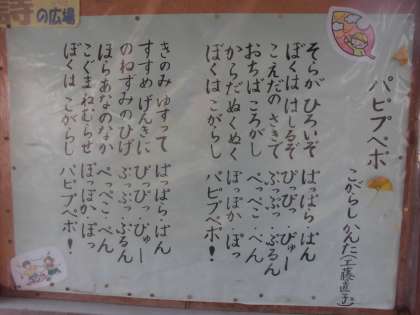 詩の広場
パピプペポ
こがらしかんた(工藤直子)
そらが ひろいぞ ぱっぱら・ぱん
ぼくは はしるぞ ぴっぴっ・ぴゅー
こえだの さきで ぷっぷっ・ぷるん
おちば ころがし ぺっぺこ・ぺん
からだ ぬくぬく ぽっぽか・ぽっ
ぼくは こがらし パピプペポ!
きのみ ゆすって ぱっぱら・ぱん
すずめ げんきに ぴっぴっ・ぴゅー
のねずみの ひげ ぷっぷっ・ぷるん
ほらあなの なか ぺっぺこ・ぺん
こぐま ねむらせ ぽっぽか・ぽっ
ぼくは こがらし パピプペポ!